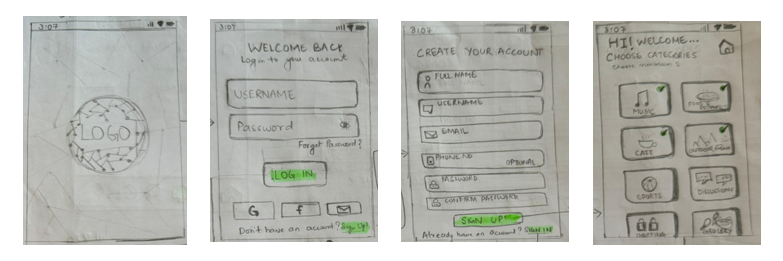 3:07
LOGO
3:07
WELCOME BACK
Login to your account
USERNAME
Password
Forgot Password?
LOG IN
G f
Don't have an account? Sign Up!
3:07
CREATE YOUR ACCOUNT
FULL NAME
USERNAME
EMAIL
PHONE NO OPTIONAL
PASSWORD
CONFIRM PASSWORD
SIGN UP
Already have an account? SIGN IN
3:07
HI! WELCOME...
CHOOSE CATEGORIES
MUSIC
SPORTS DISCUSSIONS